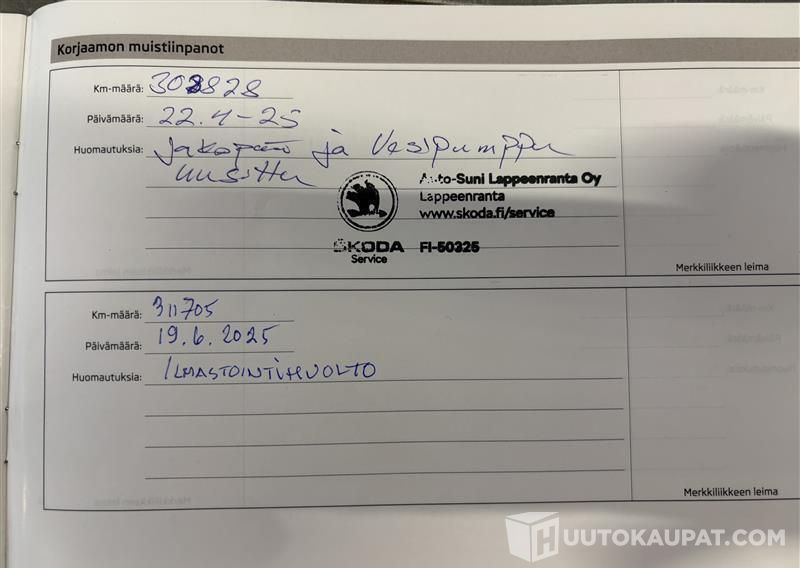 Korjaamon muistiinpanot
Km-määrä: 302828
Päivämäärä: 22.4-25
Huomautuksia: Jakopää ja Vesipumppu
uusittu
Auto-Suni Lappeenranta Oy
Lappeenranta
www.skoda.fi/service
ŠKODA FI-50325
Service
Merkkiliikkeen leima
Km-määrä: 311705
Päivämäärä: 19.6.2025
Huomautuksia: ILMASTOINTIHUOLTO
Merkkiliikkeen leima
HUUTOKAUPAT.COM